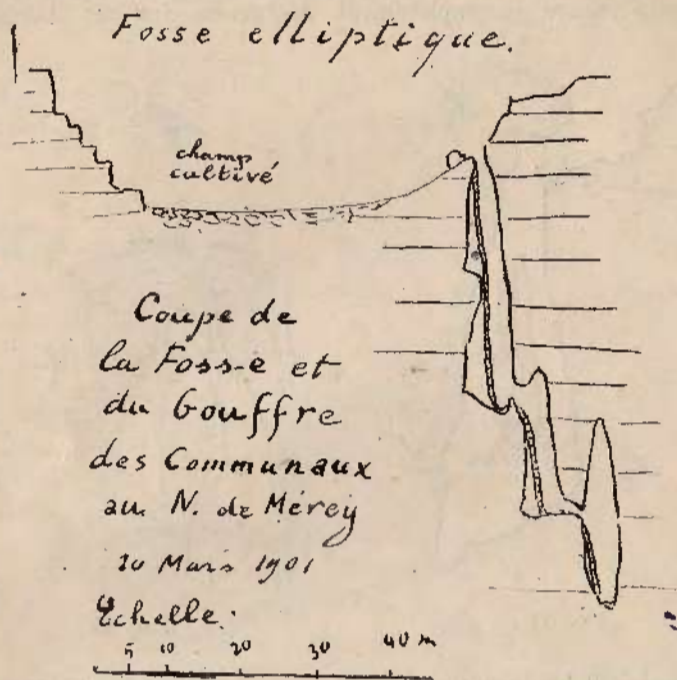 Fosse elliptique.
champ
cultivé
Coupe de
la Fosse et
du Gouffre
des Communaux
au N. de Mérey
10 Mars 1901
Echelle:
5 10 20 30 40 m